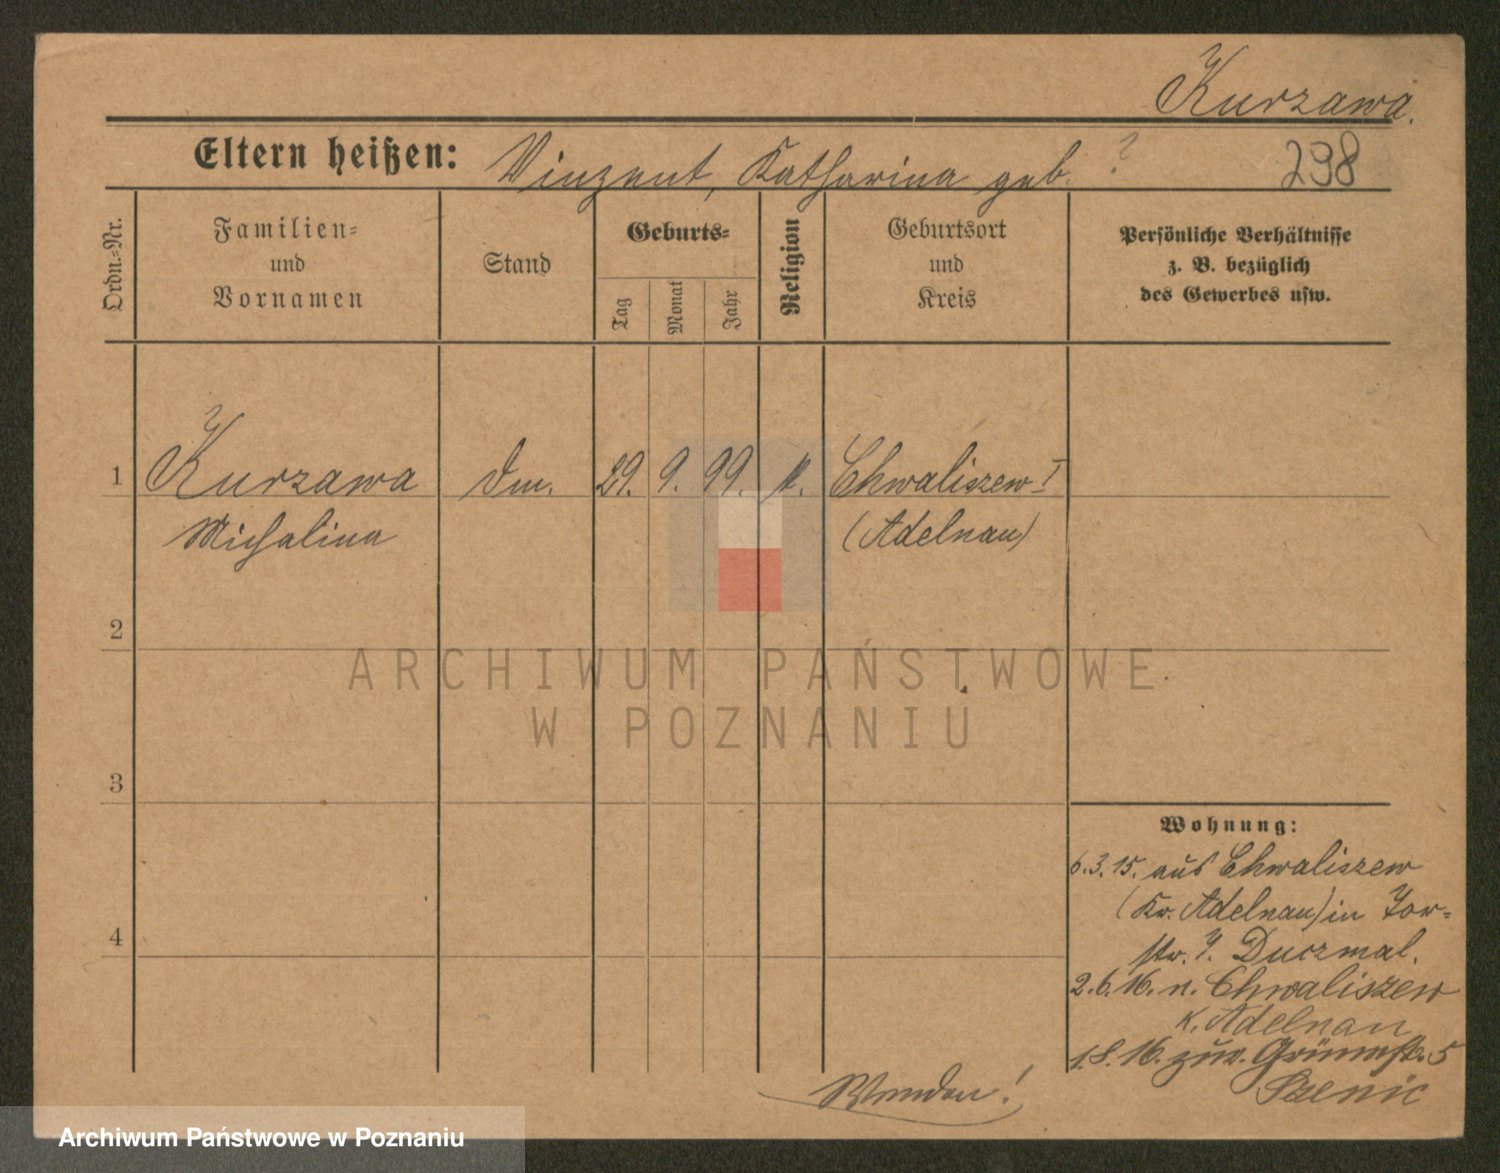 Kurzawa.
Eltern heißen: Vinzent, Katharina geb. ?
298
Ordn.-Nr.
Familien-
und
Vornamen
Stand
Geburts-
Tag
Monat
Jahr
Religion
Geburtsort
und
Kreis
Persönliche Verhältnisse
z. B. bezüglich
des Gewerbes usw.
1 Kurzawa 29. 9. 99. k. Chwaliszew I
Michalina (Adelnau)
2
ARCHIWUM PAŃSTWOWE
W POZNANIU
3
4
Wohnung:
6.3.15. aus Chwaliszew
(Kr. Adelnau) in
str. 7. Duczmal.
2.6.16. n. Chwaliszew
K. Adelnau
1.8.16. zur. Grünestr. 5
Szenic
Wenden!
Archiwum Państwowe w Poznaniu